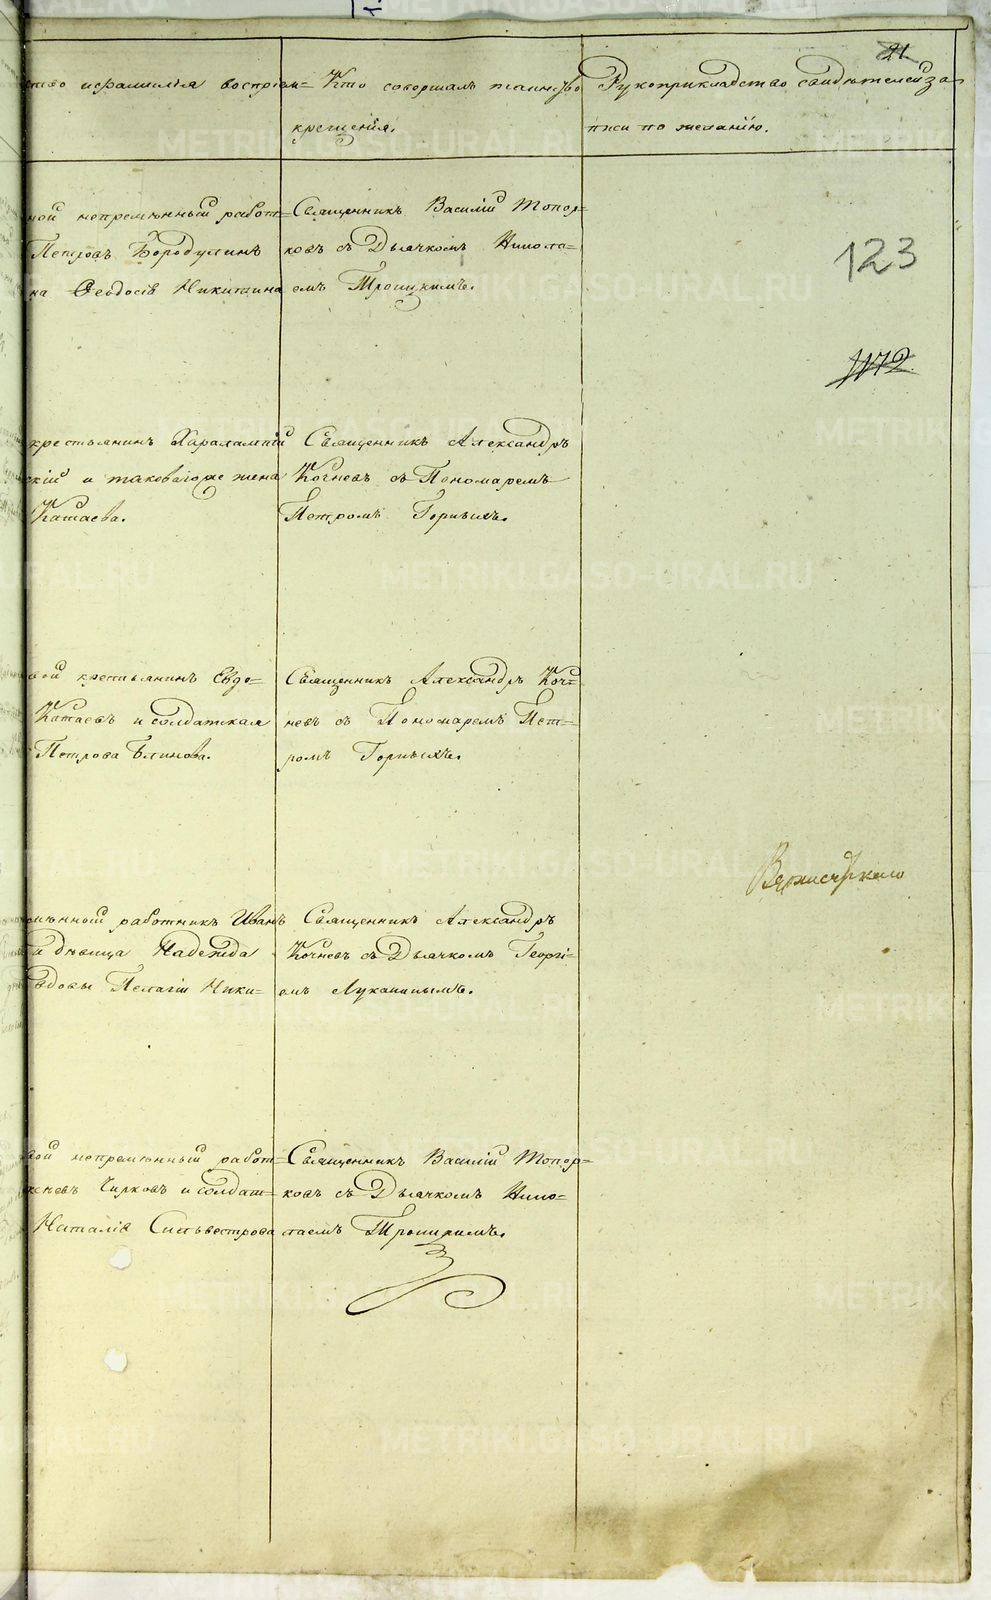 21
ство и фамилія воспріем-
Кто совершалъ таинство
крещенія.
Рукоприкладство свидѣтелей за-
писи по желанію.
123
1172.
ной непремѣнный работ-
Петровъ Бородулинъ
на Ѳеодосія Никитина
Священникъ Василій Топор-
ковъ съ Дьячкомъ Никола-
емъ Троицкимъ.
крестьянинъ Харалампій
скій и таковагоже жена
Катаева.
Священникъ Александръ
Кочневъ съ Пономаремъ
Петромъ Горныхъ.
вой крестьянинъ Евдо-
Катаевъ и солдатская
Петрова Блинова.
Священникъ Александръ Коч-
невъ съ Пономаремъ Пет-
ромъ Горныхъ.
мѣнной работникъ Иванъ
и дѣвица Надежда
вдовы Пелагіи Ники-
Священникъ Александръ
Кочневъ съ Дьячкомъ Георгі-
емъ Луканинымъ.
вой непремѣнный работ-
Чирковъ и солдат-
Наталія Сильвестрова
Священникъ Василій Топор-
ковъ съ Дьячкомъ Нико-
лаемъ Троицкимъ.
METRIKI.GASO-URAL.RU